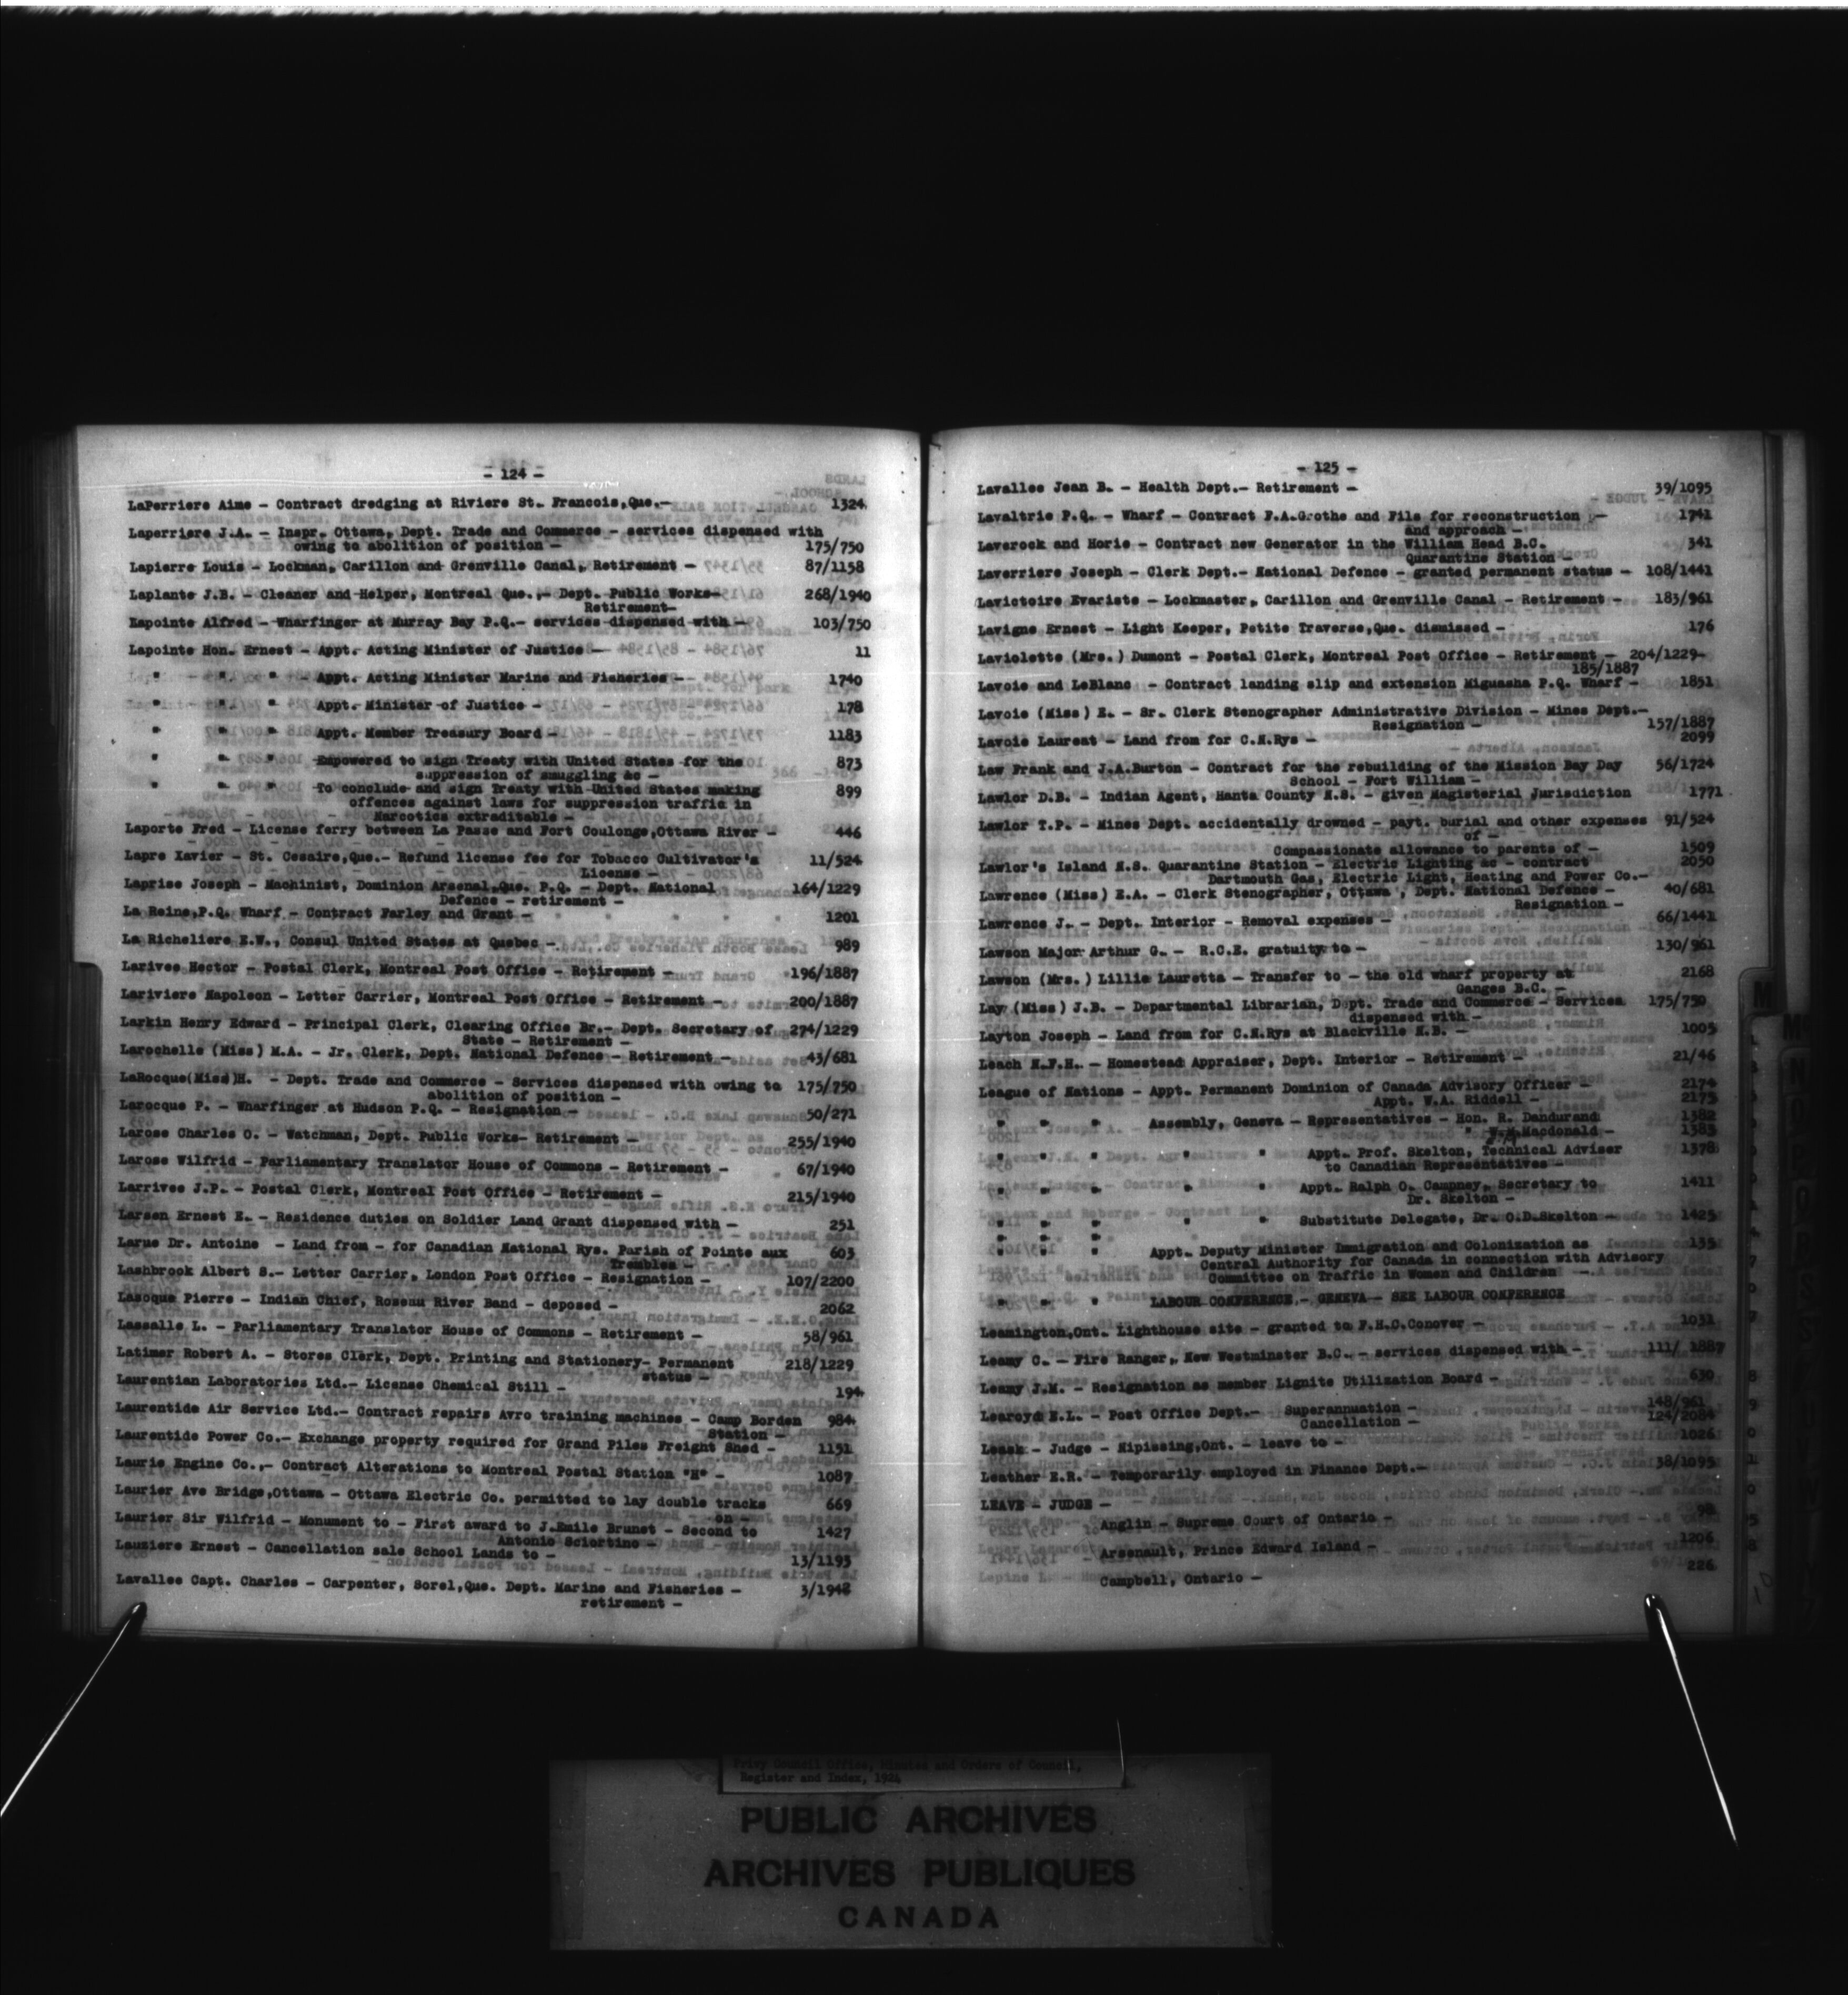 - 124 -
LaPerriere Aime - Contract dredging at Riviere St. Francois,Que.- 1324
Laperriere J.A. - Inspr. Ottawa, Dept. Trade and Commerce - services dispensed with
owing to abolition of position - 175/750
Lapierre Louis - Lockman, Carillon and Grenville Canal, Retirement - 87/1158
Laplante J.B. - Cleaner and Helper, Montreal Que. - Dept. Public Works- 268/1940
Retirement-
Lapointe Alfred - Wharfinger at Murray Bay P.Q.- services dispensed with - 103/750
Lapointe Hon. Ernest - Appt. Acting Minister of Justice - 11
" " " - Appt. Acting Minister Marine and Fisheries - 1740
" " " Appt. Minister of Justice - 178
" " " Appt. Member Treasury Board - 1183
" " " Empowered to sign Treaty with United States for the 873
suppression of smuggling &c -
" " " To conclude and sign Treaty with United States making 899
offences against laws for suppression traffic in
Narcotics extraditable -
Laporte Fred - License ferry between La Passe and Fort Coulonge,Ottawa River - 446
Lapre Xavier - St. Cesaire,Que.- Refund license fee for Tobacco Cultivator's 11/524
License -
Laprise Joseph - Machinist, Dominion Arsenal,Que. P.Q. - Dept. National 164/1229
Defence - retirement -
La Reine,P.Q. Wharf - Contract Farley and Grant - 1201
La Richeliere E.W., Consul United States at Quebec - 989
Larivee Hector - Postal Clerk, Montreal Post Office - Retirement - 196/1887
Lariviere Napoleon - Letter Carrier, Montreal Post Office - Retirement - 200/1887
Larkin Henry Edward - Principal Clerk, Clearing Office Br.- Dept. Secretary of 274/1229
State - Retirement -
Larochelle (Miss) M.A. - Jr. Clerk, Dept. National Defence - Retirement - 43/681
LaRocque(Miss)H. - Dept. Trade and Commerce - Services dispensed with owing to 175/750
abolition of position -
Larocque P. - Wharfinger at Hudson P.Q. - Resignation - 50/271
Larose Charles O. - Watchman, Dept. Public Works- Retirement - 255/1940
Larose Wilfrid - Parliamentary Translator House of Commons - Retirement - 67/1940
Larrivee J.P. - Postal Clerk, Montreal Post Office - Retirement - 215/1940
Larsen Ernest E. - Residence duties on Soldier Land Grant dispensed with - 251
Larue Dr. Antoine - Land from - for Canadian National Rys. Parish of Pointe aux 603
Trembles -
Lashbrook Albert S.- Letter Carrier, London Post Office - Resignation - 107/2200
Lasoque Pierre - Indian Chief, Roseau River Band - deposed - 2062
Lassalle L. - Parliamentary Translator House of Commons - Retirement - 58/961
Latimer Robert A. - Stores Clerk, Dept. Printing and Stationery- Permanent 218/1229
status -
Laurentian Laboratories Ltd.- License Chemical Still - 194
Laurentide Air Service Ltd.- Contract repairs Avro training machines - Camp Borden 984
Station -
Laurentide Power Co.- Exchange property required for Grand Piles Freight Shed - 1151
Laurie Engine Co.,- Contract Alterations to Montreal Postal Station "H" - 1087
Laurier Ave Bridge,Ottawa - Ottawa Electric Co. permitted to lay double tracks 669
on -
Laurier Sir Wilfrid - Monument to - First award to J.Emile Brunet - Second to 1427
Antonio Sciortino -
Lauziere Ernest - Cancellation sale School Lands to - 13/1193
Lavallee Capt. Charles - Carpenter, Sorel,Que. Dept. Marine and Fisheries - 3/1948
retirement -
- 125 -
Lavallee Jean B. - Health Dept.- Retirement - 39/1095
Lavaltrie P.Q. - Wharf - Contract F.A.Grothe and Fils for reconstruction - 1741
and approach -
Laverock and Horie - Contract new Generator in the William Head B.C. 341
Quarantine Station -
Laverriere Joseph - Clerk Dept.- National Defence - granted permanent status - 108/1441
Lavictoire Evariste - Lockmaster, Carillon and Grenville Canal - Retirement - 183/961
Lavigne Ernest - Light Keeper, Petite Traverse,Que. dismissed - 176
Laviolette (Mrs.) Dumont - Postal Clerk, Montreal Post Office - Retirement - 204/1229-
185/1887
Lavoie and LeBlanc - Contract landing slip and extension Miguasha P.Q. Wharf - 1851
Lavoie (Miss) E. - Sr. Clerk Stenographer Administrative Division - Mines Dept.-
Resignation - 157/1887
Lavoie Laureat - Land from for C.N.Rys - 2099
Law Frank and J.A.Burton - Contract for the rebuilding of the Mission Bay Day 56/1724
School - Fort William -
Lawlor D.B. - Indian Agent, Hants County N.S. - given Magisterial Jurisdiction 1771
Lawlor T.P. - Mines Dept. accidentally drowned - payt. burial and other expenses 91/524
of -
Compassionate allowance to parents of - 1509
Lawlor's Island N.S. Quarantine Station - Electric Lighting &c - contract 2050
Dartmouth Gas, Electric Light, Heating and Power Co.-
Lawrence (Miss) E.A. - Clerk Stenographer, Ottawa, Dept. National Defence - 40/681
Resignation -
Lawrence J. - Dept. Interior - Removal expenses - 66/1441
Lawson Major Arthur G. - R.C.E. gratuity to - 130/961
Lawson (Mrs.) Lillie Lauretta - Transfer to - the old wharf property at 2168
Ganges B.C. -
Lay (Miss) J.B. - Departmental Librarian, Dept. Trade and Commerce - Services 175/750
dispensed with -
Layton Joseph - Land from for C.N.Rys at Blackville N.B. - 1005
Leach N.F.H. - Homestead Appraiser, Dept. Interior - Retirement - 21/46
League of Nations - Appt. Permanent Dominion of Canada Advisory Officer - 2174
Appt. W.A. Riddell - 2175
" " " Assembly, Geneva - Representatives - Hon. R. Dandurand 1382
" Macdonald - 1383
" " " " " Appt. Prof. Skelton, Technical Adviser 1378
to Canadian Representatives -
" " " " " Appt. Ralph O. Campney, Secretary to 1411
Dr. Skelton -
" " " " " Substitute Delegate, Dr. O.D.Skelton - 1425
" " "
" " " Appt. Deputy Minister Immigration and Colonization as 135
Central Authority for Canada in connection with Advisory
Committee on Traffic in Women and Children -
" " " LABOUR CONFERENCE - GENEVA - SEE LABOUR CONFERENCE
Leamington,Ont. Lighthouse site - granted to F.H.C.Conover - 1031
Leamy C. - Fire Ranger, New Westminster B.C. - services dispensed with - 111/ 1887
Leamy J.M. - Resignation as member Lignite Utilization Board - 630
Learoyd E.L. - Post Office Dept.- Superannuation - 148/961
Cancellation - 124/2084
Leask - Judge - Nipissing,Ont. - leave to - 1026
Leather E.R. - Temporarily employed in Finance Dept.- 38/1095
LEAVE - JUDGE -
Anglin - Supreme Court of Ontario - 98
Arsenault, Prince Edward Island - 1206
Campbell, Ontario - 226
Privy Council Office, Minutes and Orders of Council,
Register and Index, 1924
PUBLIC ARCHIVES
ARCHIVES PUBLIQUES
CANADA